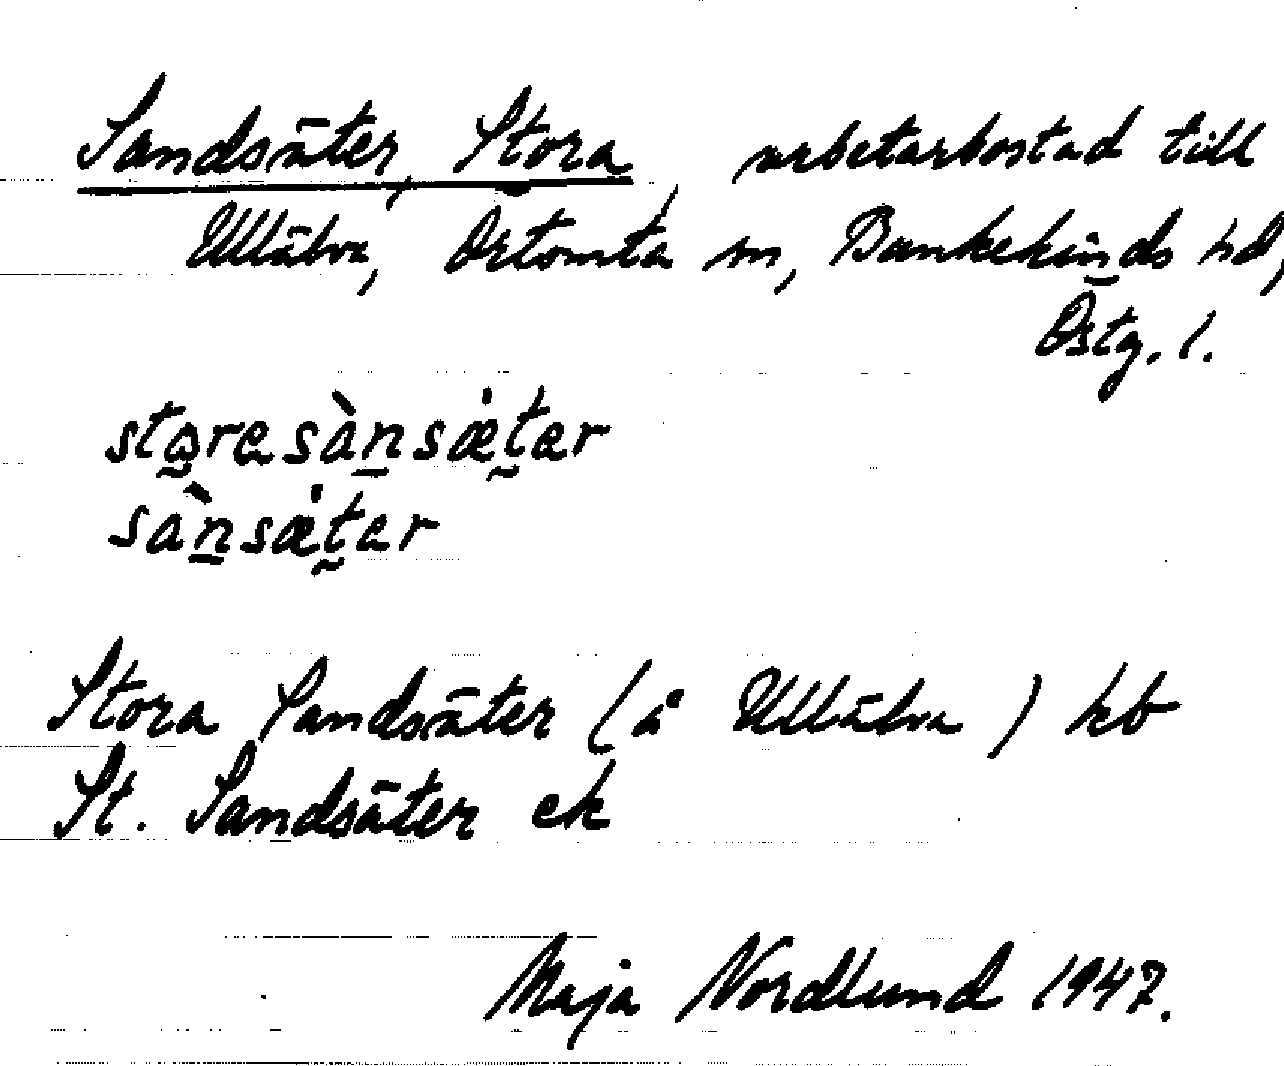 Sandsäter, Stora, arbetarbostad till
Ullälva, Örtomta sn, Bankekinds hd,
Östg. l.
storesànsæter
sànsæter
Stora Sandsäter (å Ullälva) kb
St. Sandsäter ek
Maja Nordlund 1947.